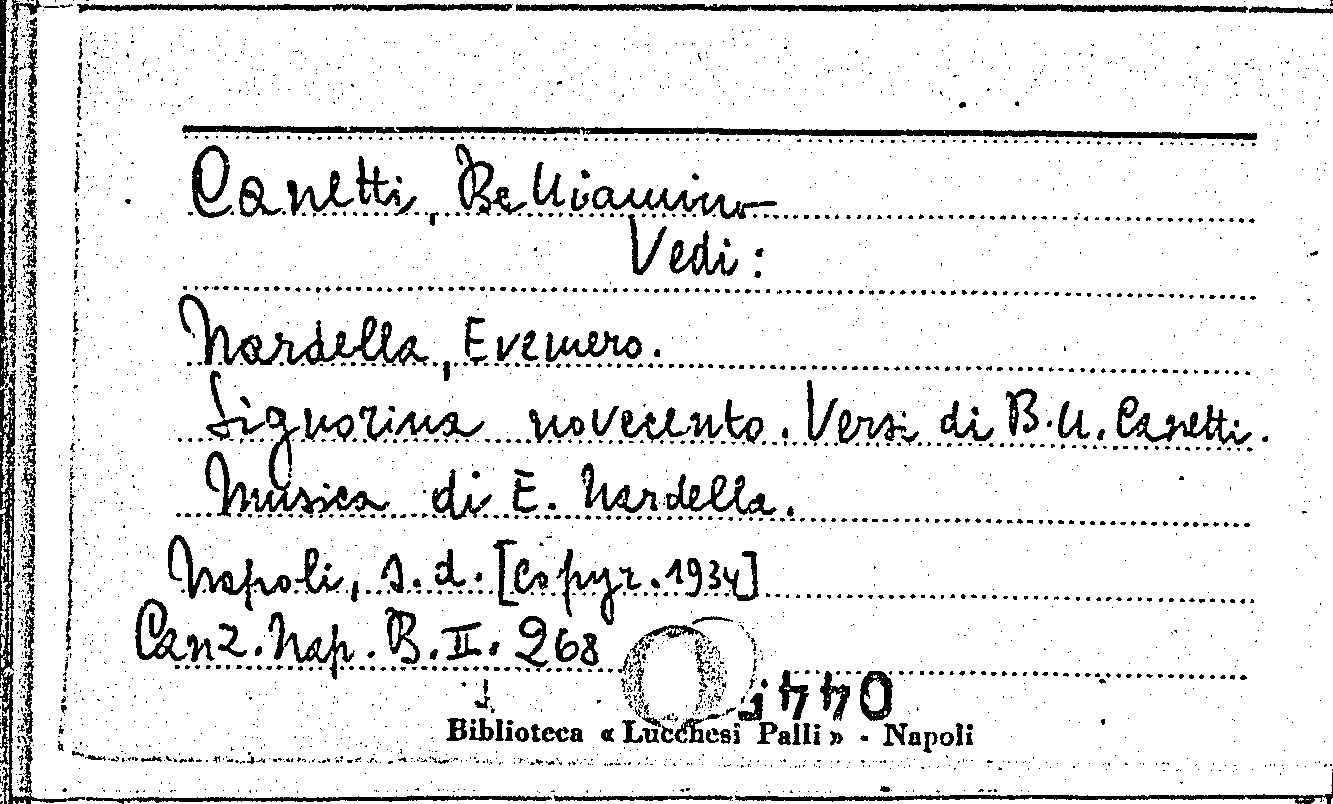 Canetti, Belliamino
Vedi:
Nardella, Evemero.
Signorina novecento. Versi di B.U. Canetti.
Musica di E. Nardella.
Napoli, s.d. [Copyr. 1934]
Canz. Nap. B. II. 268
Biblioteca « Lucchesi Palli » - Napoli